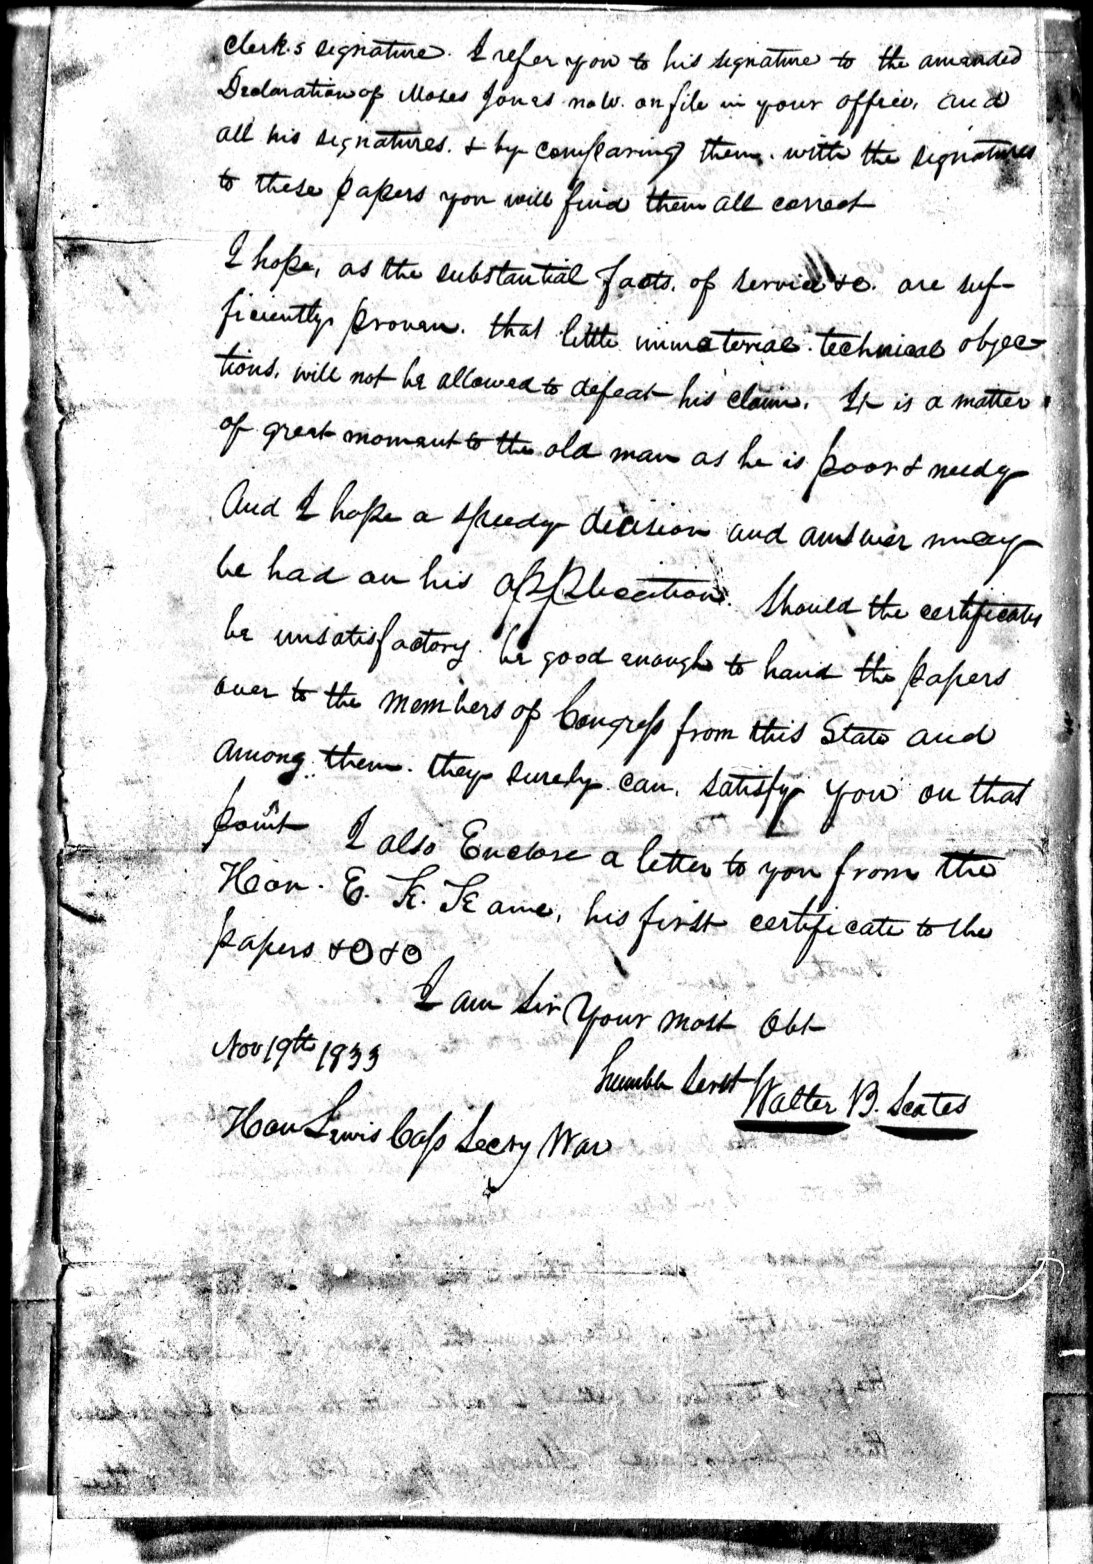 Clerk.s signature. I refer you to his signature to the amended
Declaration of Moses Jones now. on file in your office, and
all his signatures. & by comparing them. with the signatures
to these papers you will find them all correct
I hope, as the substantial facts. of service &c. are suf-
ficiently proven. that little immaterial technical objec-
tions. will not be allowed to defeat his claim. It is a matter
of great moment to the old man as he is poor & needy
And I hope a speedy decision and answer may
be had on his application. Should the certificates
be unsatisfactory. be good enough to hand the papers
over to the members of Congress from this State and
among them. they surely can. satisfy you on that
point I also Enclose a letter to you from the
Hon. E. K. Kane, his first certificate to the
papers &c &c
I am Sir Your most Obt
Nov 19th 1833
humble Servt Walter B. Scates
Hon Lewis Cass Secry War